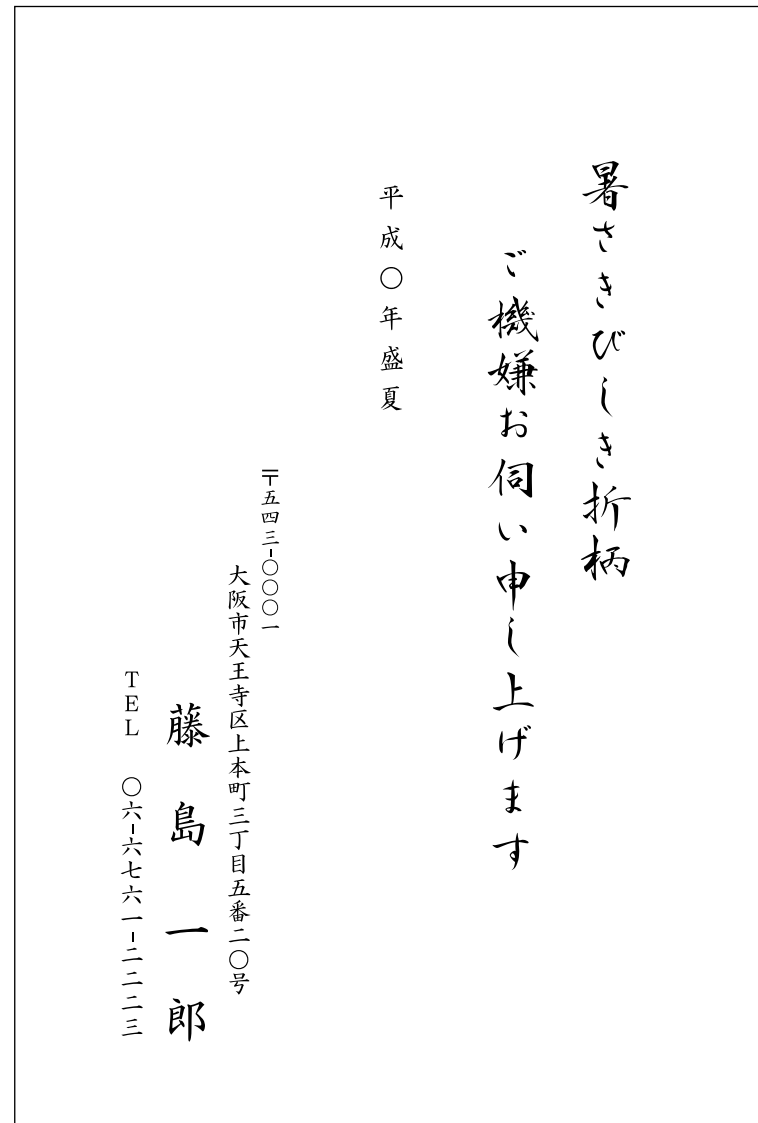 暑さきびしき折柄
ご機嫌お伺い申し上げます
平成〇年盛夏
〒五四三-〇〇〇一
大阪市天王寺区上本町三丁目五番二〇号
藤島一郎
TEL 〇六-六七六一-二二二三